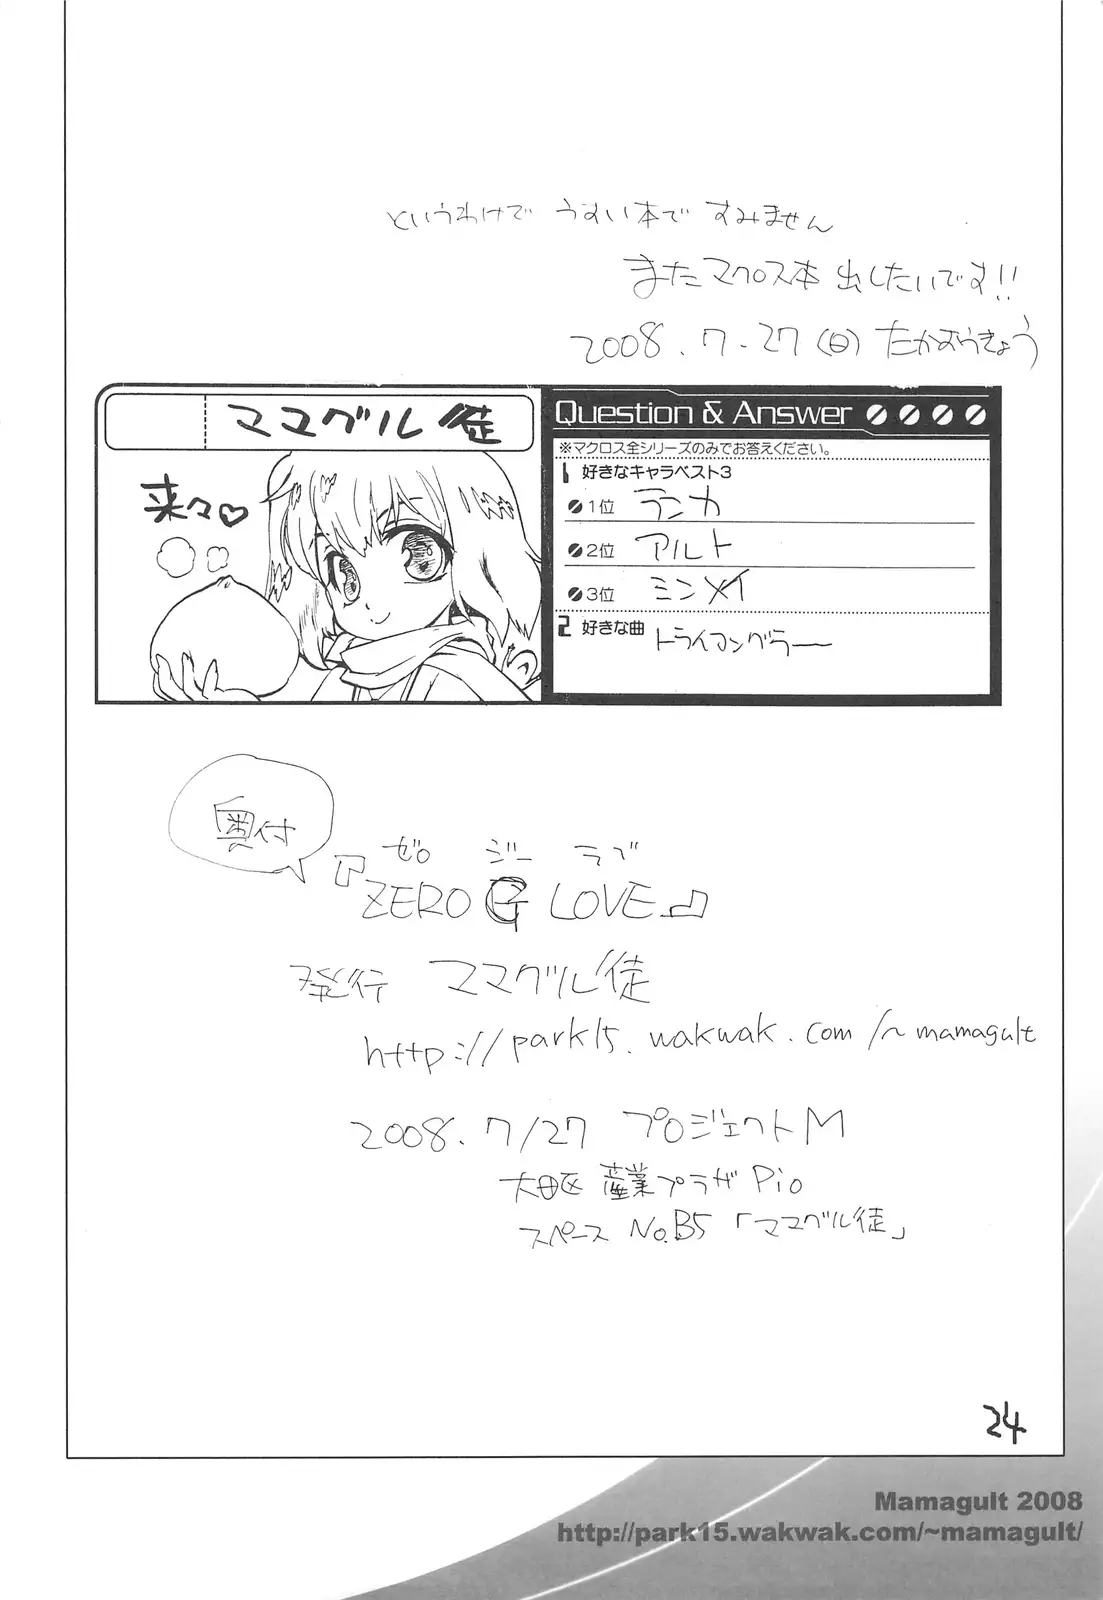 というわけで うすい本で すみません
またマクロス本 出したいです!!
2008.7.27(日) たかおうきょう
ママグル徒
来々♡
Question & Answer
※マクロス全シリーズのみでお答えください。
1 好きなキャラベスト3
1位 ランカ
2位 アルト
3位 ミンメイ
2 好きな曲 トライアングラー
奥付
ゼロ ジー ラブ
『ZERO G LOVE』
発行 ママグル徒
http://park15.wakwak.com/~mamagult
2008.7/27 プロジェクトM
大田区 産業プラザPio
スペース No.B5 「ママグル徒」
24
Mamagult 2008
http://park15.wakwak.com/~mamagult/